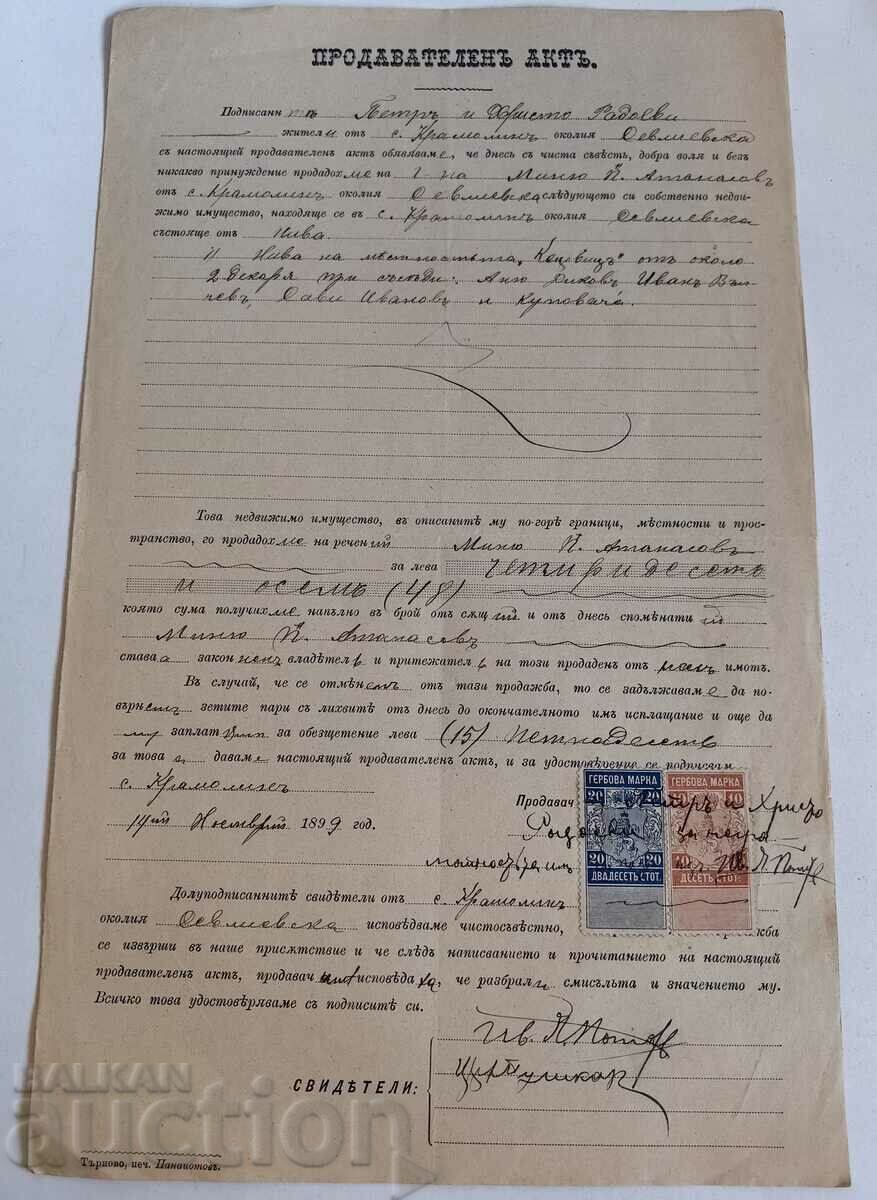 ПРОДАВАТЕЛЕНЪ АКТЪ.
Подписанн тѣ Петръ и Христо Радоеви
жители отъ с. Крамолинъ околия Севлиевска
съ настоящий продавателенъ актъ обявяваме, че днесь съ чиста съвѣсть, добра воля и безъ
никакво принуждение продадохме на Г-на Миню Й. Атанасовъ
отъ с. Крамолинъ околия Севлиевска следующето си собственно недви-
жимо имущество, находяще се въ с. Крамолинъ околия Севлиевска
състояще отъ Нива.
1) Нива на мѣстностьта „ отъ около
2 декаря при съседи: Аню Диковъ Иванъ Въл-
чевъ, Сави Ивановъ и купувача.
Това недвижимо имущество, въ описанитѣ му по-горѣ граници, мѣстности и прос-
транство, го продадохме на речений Миню Й. Атанасовъ
за лева четиридесеть
и осемь (48)
която сума получихме напълно въ брой отъ сѫщий и отъ днесь споменати й
Миню Й. Атанасовъ
става законенъ владѣтель и притежатель на този продаденъ отъ насъ имотъ.
Въ случай, че се отмѣнемъ отъ тази продажба, то се задължаваме да по-
върнемъ зетите пари съ лихвитѣ отъ днесь до окончателното имъ исплащание и още да
му заплатимъ за обезщетение лева (15) петнадесеть
за това и даваме настоящий продавателенъ актъ, и за удостовѣрение се подписахми
с. Крамолинъ
14ий Ноемврий 1899 год.
Продавач Петръ и Христо
Радоеви за негра-
мотностьта имъ Ив. П. Поповъ
ГЕРБОВА МАРКА ГЕРБОВА МАРКА
20 20 10
20 20
ДВАДЕСЕТЬ СТОТ. ДЕСЕТЬ СТОТ.
Долуподписаннитѣ свидѣтели отъ с. Крамолинъ
околия Севлиевска исповѣдваме чистосъвѣстно,
се извърши въ наше присѫтствие и че слѣдъ написванието и прочитанието на настоящий
продавателенъ актъ, продавачитѣ исповѣдаха, че разбрали смисълъта и значението му.
Всичко това удостовѣряваме съ подписитѣ си.
Ив. П. Поповъ
СВИДѢТЕЛИ:
Търново, печ. Панайотовъ.
BALKAN
auction